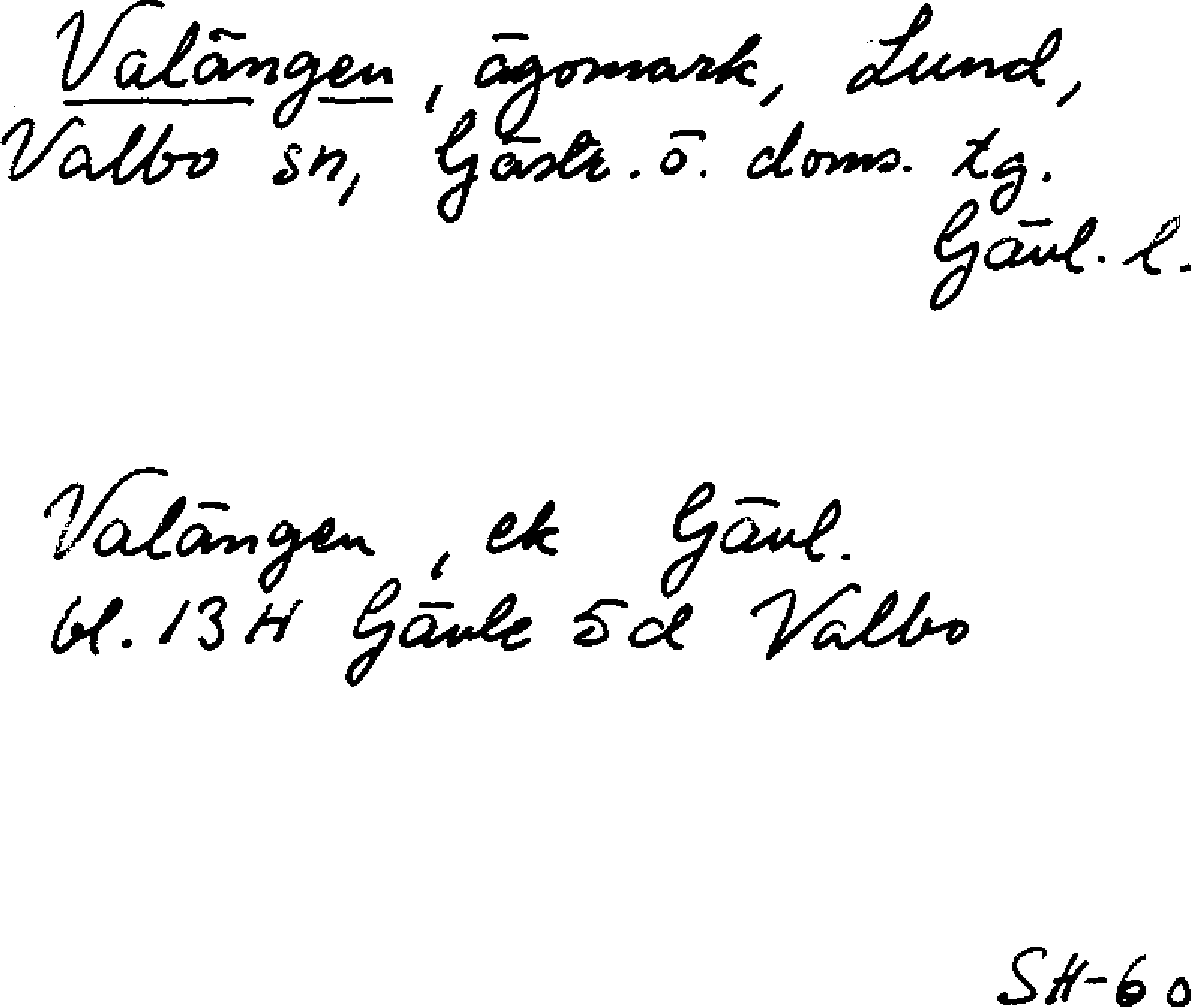 Valängen, ägomark, Lund,
Valbo sn, Gästr. ö. doms. tg.
Gävl. l.
Valängen, ek Gävl.
bl. 13 H Gävle 5 d Valbo
SH-60